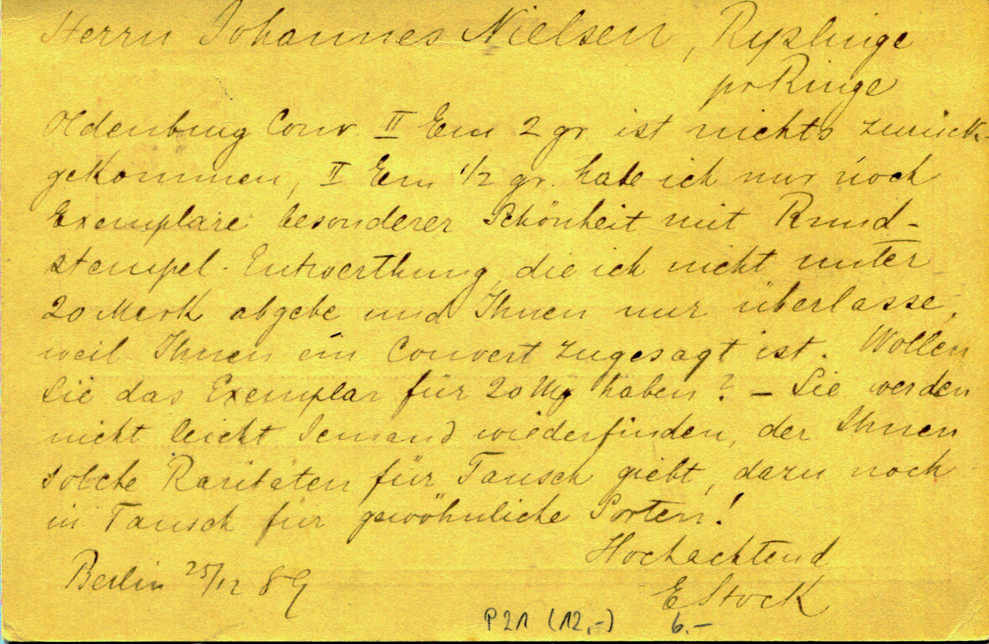 Herrn Johannes Nielsen, Ryslinge
pr Ringe
Oldenburg Conv. II Em 2 gr ist nichts zurück-
gekommen, II Em 1/2 gr. habe ich nur noch
Exemplare besonderer Schönheit mit Rund-
stempel-Entwerthung, die ich nicht unter
20 Mark abgebe und Ihnen nur überlasse,
weil Ihnen ein Convert zugesagt ist. Wollen
Sie das Exemplar für 20 Mk haben? – Sie werden
nicht leicht Jemand wiederfinden, der Ihnen
solche Raritäten für Tausch giebt, dazu noch
in Tausch für gewöhnliche Sorten!
Hochachtend
Berlin 25/12 89
EStock
P21 (12,-) 6.-